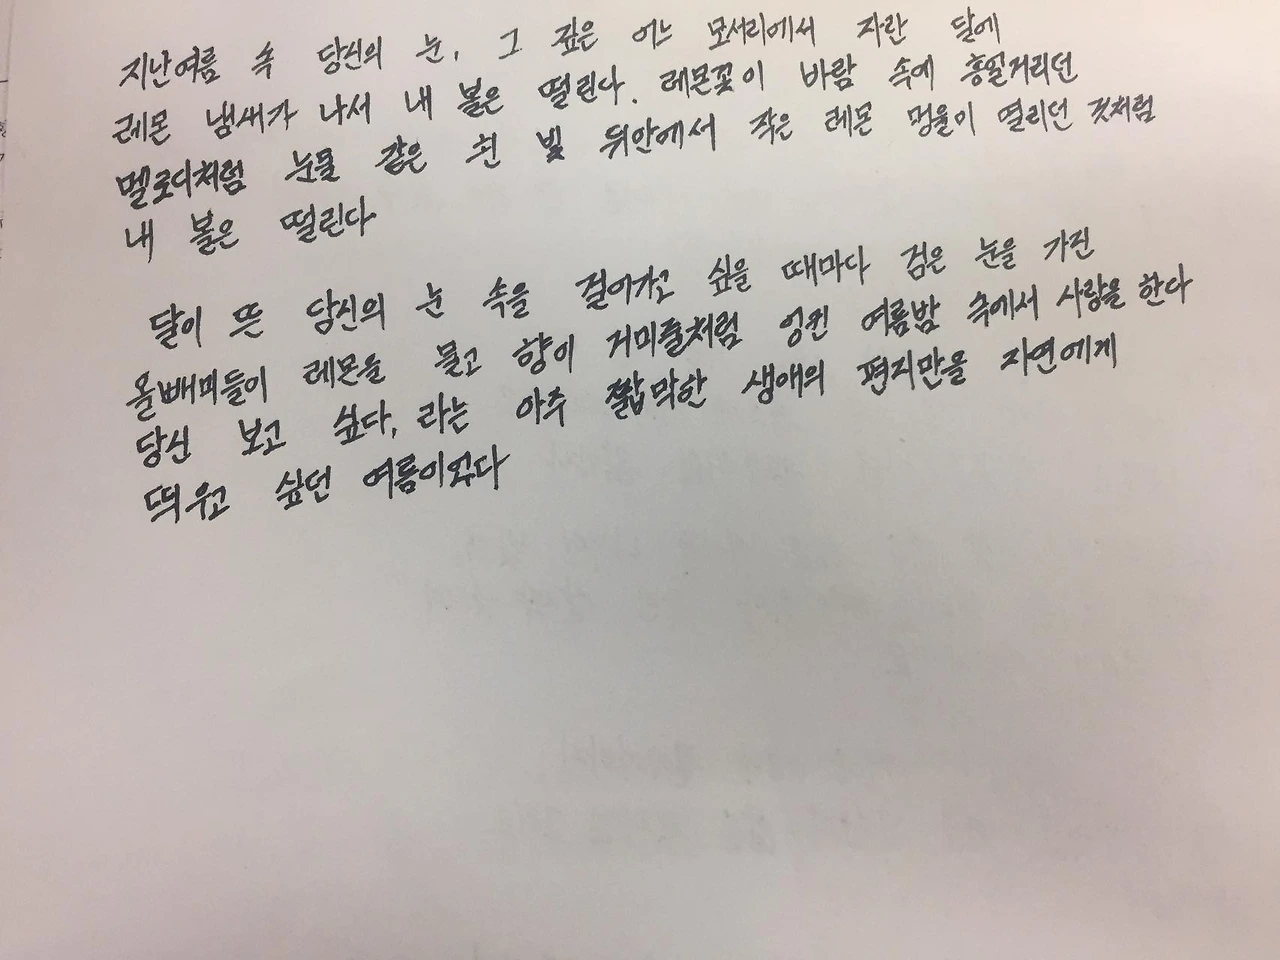 지난여름 속 당신의 눈, 그 깊은 어느 모서리에서 자란 달에
레몬 냄새가 나서 내 볼은 떨린다. 레몬꽃이 바람 속에 흥얼거리던
멜로디처럼 눈물 같은 흰 빛 뒤안에서 작은 레몬 멍울이 열리던 것처럼
내 볼은 떨린다
달이 뜬 당신의 눈 속을 걸어가고 싶을 때마다 검은 눈을 가진
올빼미들이 레몬을 물고 향이 거미줄처럼 엉킨 여름밤 속에서 사랑을 한다
당신 보고 싶다, 라는 아주 짤막한 생애의 편지만을 자연에게
띄우고 싶던 여름이었다